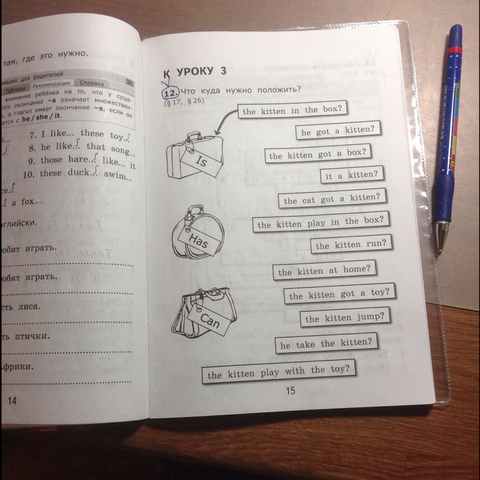 там, где это нужно.
для родителей
Таблицы Рекомендации Справка
внимание ребёнка на то, что у суще-
окончание –s означает множествен-
а глагол имеет окончание –s, если он
с he / she / it.
7. I like... these toy...
8. he like... that song...
9. those hare... like... it
10. these duck... swim...
a fox...
играть.
играть.
лиса.
птички.
14
К УРОКУ 3
12. Что куда нужно положить?
(§ 17, § 26)
the kitten in the box?
he got a kitten?
the kitten got a box?
Is
it a kitten?
the cat got a kitten?
the kitten play in the box?
Has
the kitten run?
the kitten at home?
the kitten got a toy?
Can
the kitten jump?
he take the kitten?
the kitten play with the toy?
15